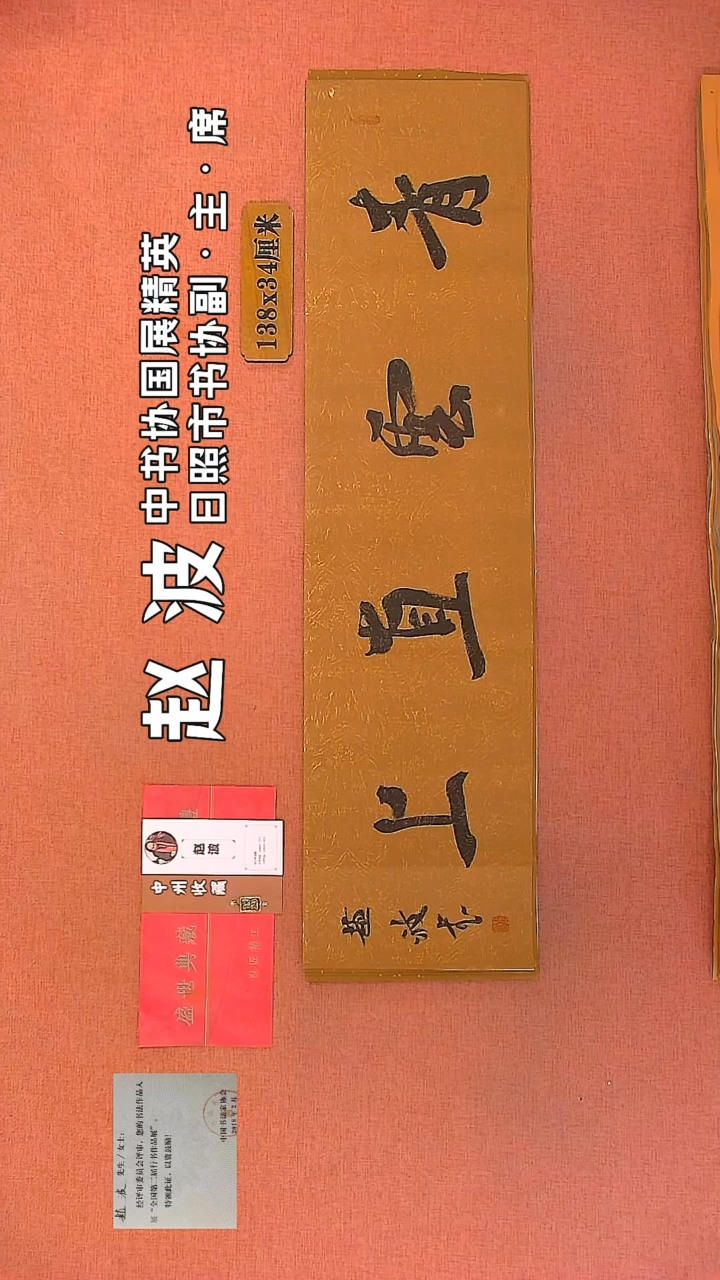 赵波
中书协国展精英
日照市书协副·主·席
138x34厘米
青雲直上
趙波书
赵波
中州收藏
盛世典藏
赵波 先生/女士：
经评审委员会评审，您的书法作品入
展“全国第二届行书作品展”。
特颁此证，以资鼓励！
中国书法家协会
2018年2月